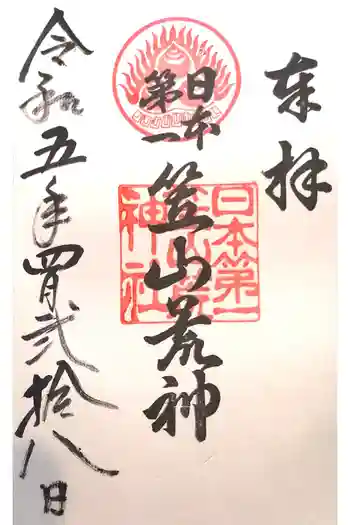 奉拝
日本
第一
笠山荒神
日本第一
笠山荒
神社
令和五年四月弐拾八日